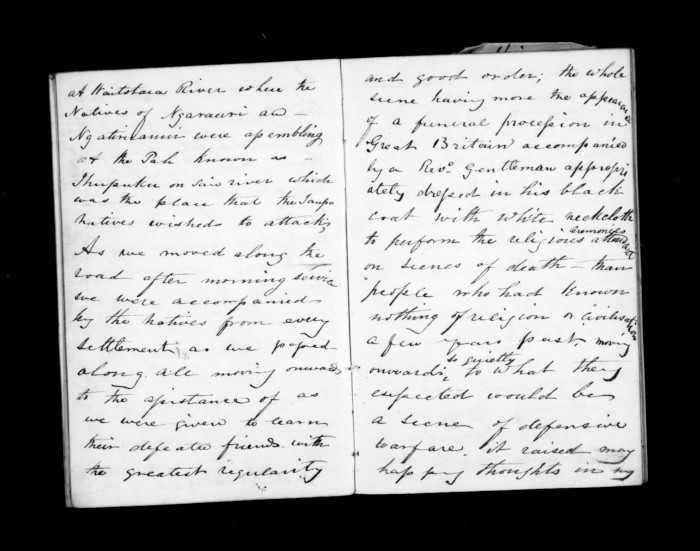 at Waitotara River where the
Natives of Ngarauri and
Ngatiruanui were assembling
at the Pah known as
Ihupuku on said river which
was the place that the Taupo
natives wished to attack,
As we moved along the
road after morning service
we were accompanied
by the natives from every
settlement as we passed
along. all moving onwards
to the assistance of as
we were given to learn
their defeated friends with
the greatest regularity
and good order; the whole
scene having more the appearance
of a funeral procession in
Great Britain accompanied
by a Revd. Gentleman appropri
ately dressed in his black
coat with white neckcloth
to perform the religious ceremonies attendant
on scenes of death - than
people who had known
nothing of religion or civilisation
a few years past. moving
onwards so quietly to what they
expected would be
a scene of defensive
warfare. it raised many
happy thoughts in my